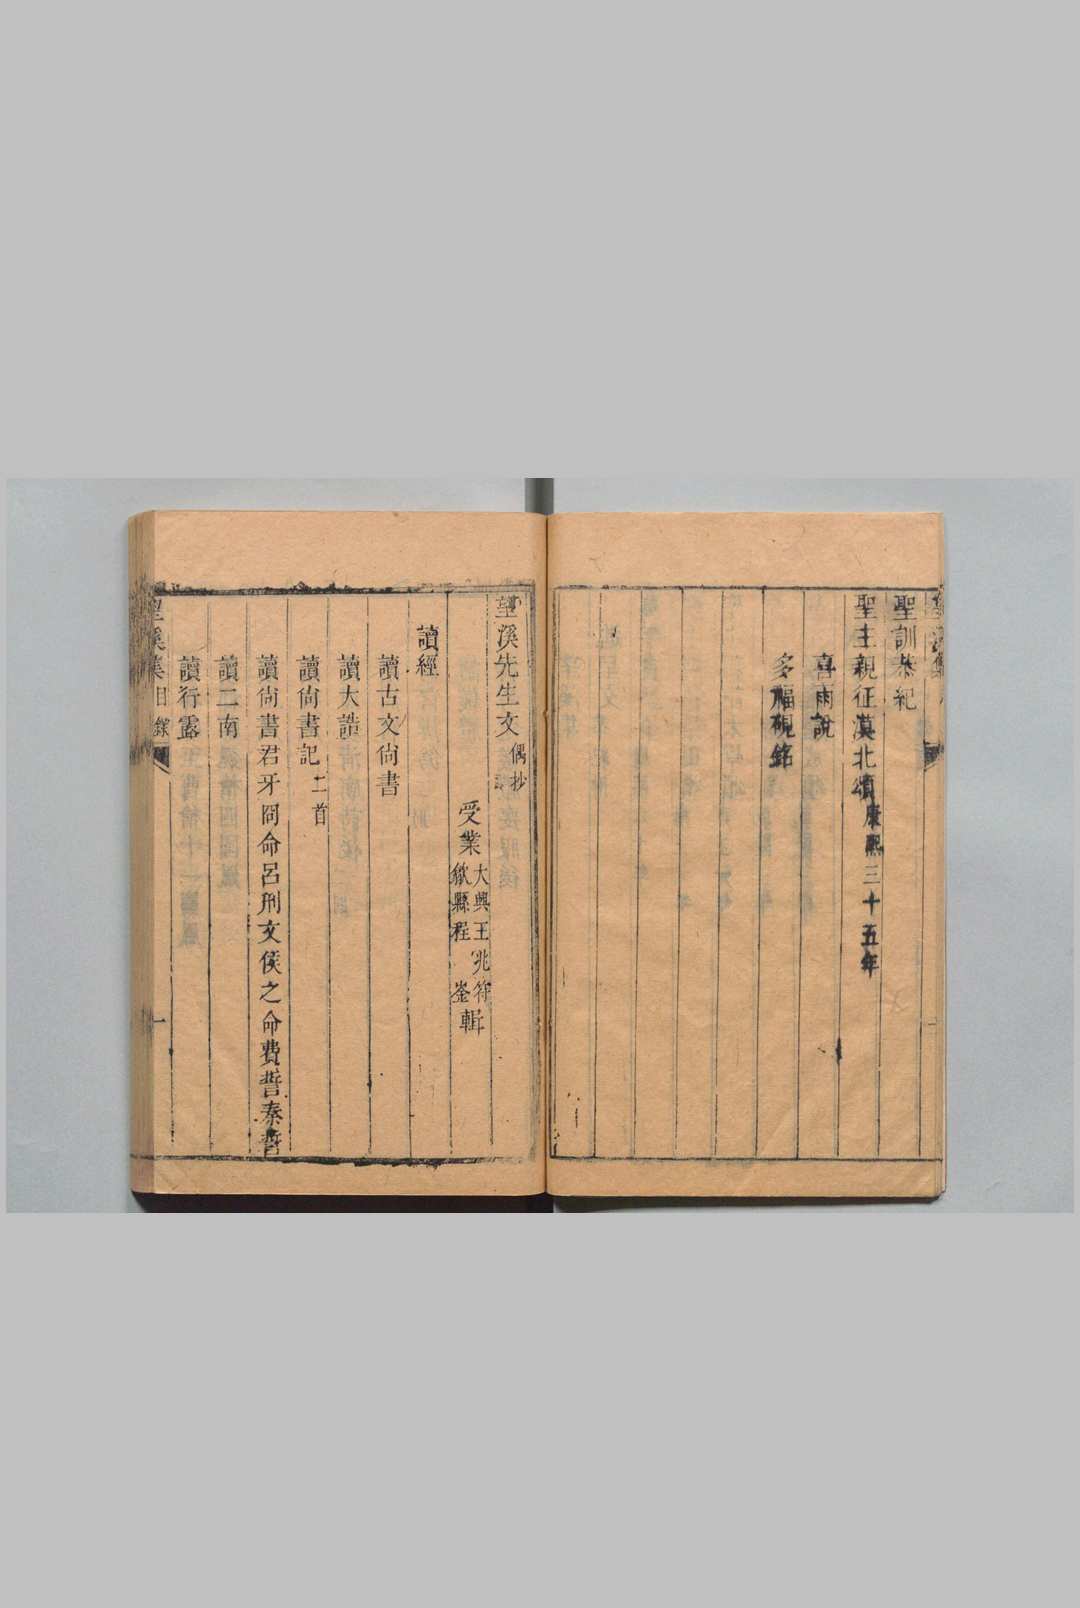 聖訓恭紀
聖主親征漠北頌康熙三十五年
喜雨說
多福硯銘
望溪先生文偶抄
受業大興王兆符歙縣程崟輯
讀經
讀古文尚書
讀大誥
讀尚書記二首
讀尚書君牙冏命呂刑文侯之命費誓秦誓
讀二南
讀行露
望溪集 目錄 一